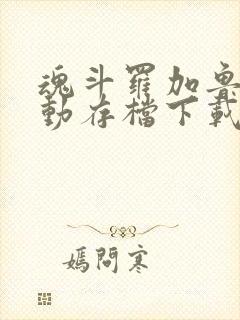 魂斗羅加魯
動存檔下載
媽問寒